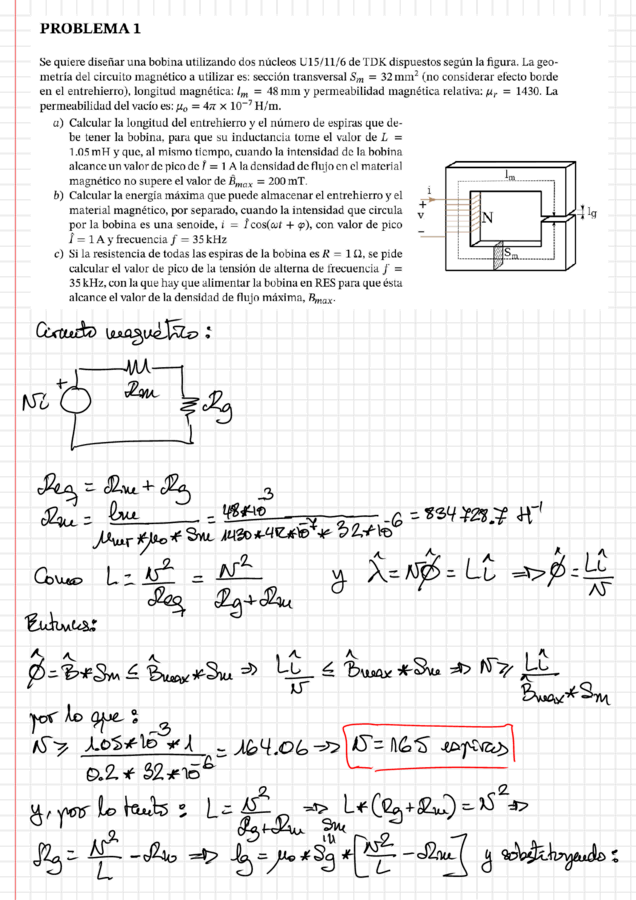 PROBLEMA 1
Se quiere diseñar una bobina utilizando dos núcleos U15/11/6 de TDK dispuestos según la figura. La geo-
metría del circuito magnético a utilizar es: sección transversal Sm = 32 mm² (no considerar efecto borde
en el entrehierro), longitud magnética: lm = 48 mm y permeabilidad magnética relativa: μr = 1430. La
permeabilidad del vacío es: μo = 4π × 10⁻⁷ H/m.
a) Calcular la longitud del entrehierro y el número de espiras que de-
be tener la bobina, para que su inductancia tome el valor de L =
1.05 mH y que, al mismo tiempo, cuando la intensidad de la bobina
alcance un valor de pico de Î = 1 A la densidad de flujo en el material
magnético no supere el valor de B̂max = 200 mT.
b) Calcular la energía máxima que puede almacenar el entrehierro y el
material magnético, por separado, cuando la intensidad que circula
por la bobina es una senoide, i = Î cos(ωt + φ), con valor de pico
Î = 1 A y frecuencia f = 35 kHz
c) Si la resistencia de todas las espiras de la bobina es R = 1 Ω, se pide
calcular el valor de pico de la tensión de alterna de frecuencia f =
35 kHz, con la que hay que alimentar la bobina en RES para que ésta
alcance el valor de la densidad de flujo máxima, Bmax.
lm
i
+
v
−
N
Sm
lg
Circuito magnético:
Ni
+
Rm
Rg
Req = Rm + Rg
Rm = lm / (μmr * μo * Sm) = 48*10⁻³ / (1430*4π*10⁻⁷ * 32*10⁻⁶) = 834 728.7 H⁻¹
Como L = N²/Req = N²/(Rg+Rm) y λ̂ = Nϕ̂ = Lî ⇒ ϕ̂ = Lî/N
Entonces:
ϕ̂ = B̂*Sm ≤ B̂max*Sm ⇒ Lî/N ≤ B̂max*Sm ⇒ N ≥ Lî/(B̂max*Sm)
por lo que:
N ≥ 1.05*10⁻³*1 / (0.2*32*10⁻⁶) = 164.06 ⇒ N = 165 espiras
y, por lo tanto: L = N²/(Rg+Rm) ⇒ L*(Rg+Rm) = N² ⇒
Sm
Rg = N²/L − Rm ⇒ lg = μo*Sg*[N²/L − Rm] y substituyendo: